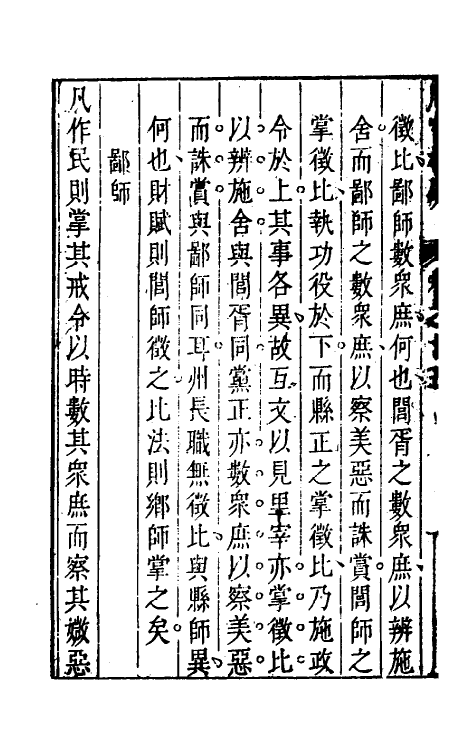 徵比鄙師數衆庶何也閭胥之數衆庶以辨施
舍而鄙師之數衆庶以察美惡而誅賞閭師之
掌徵比執功役於下而縣正之掌徵比乃施政
令於上其事各異故互文以見里宰亦掌徵比
以辨施舍與閭胥同黨正亦數衆庶以察美惡
而誅賞與鄙師同耳州長職無徵比與縣師異
何也財賦則閭師徵之比法則鄉師掌之矣
鄙師
凡作民則掌其戒令以時數其衆庶而察其媺惡